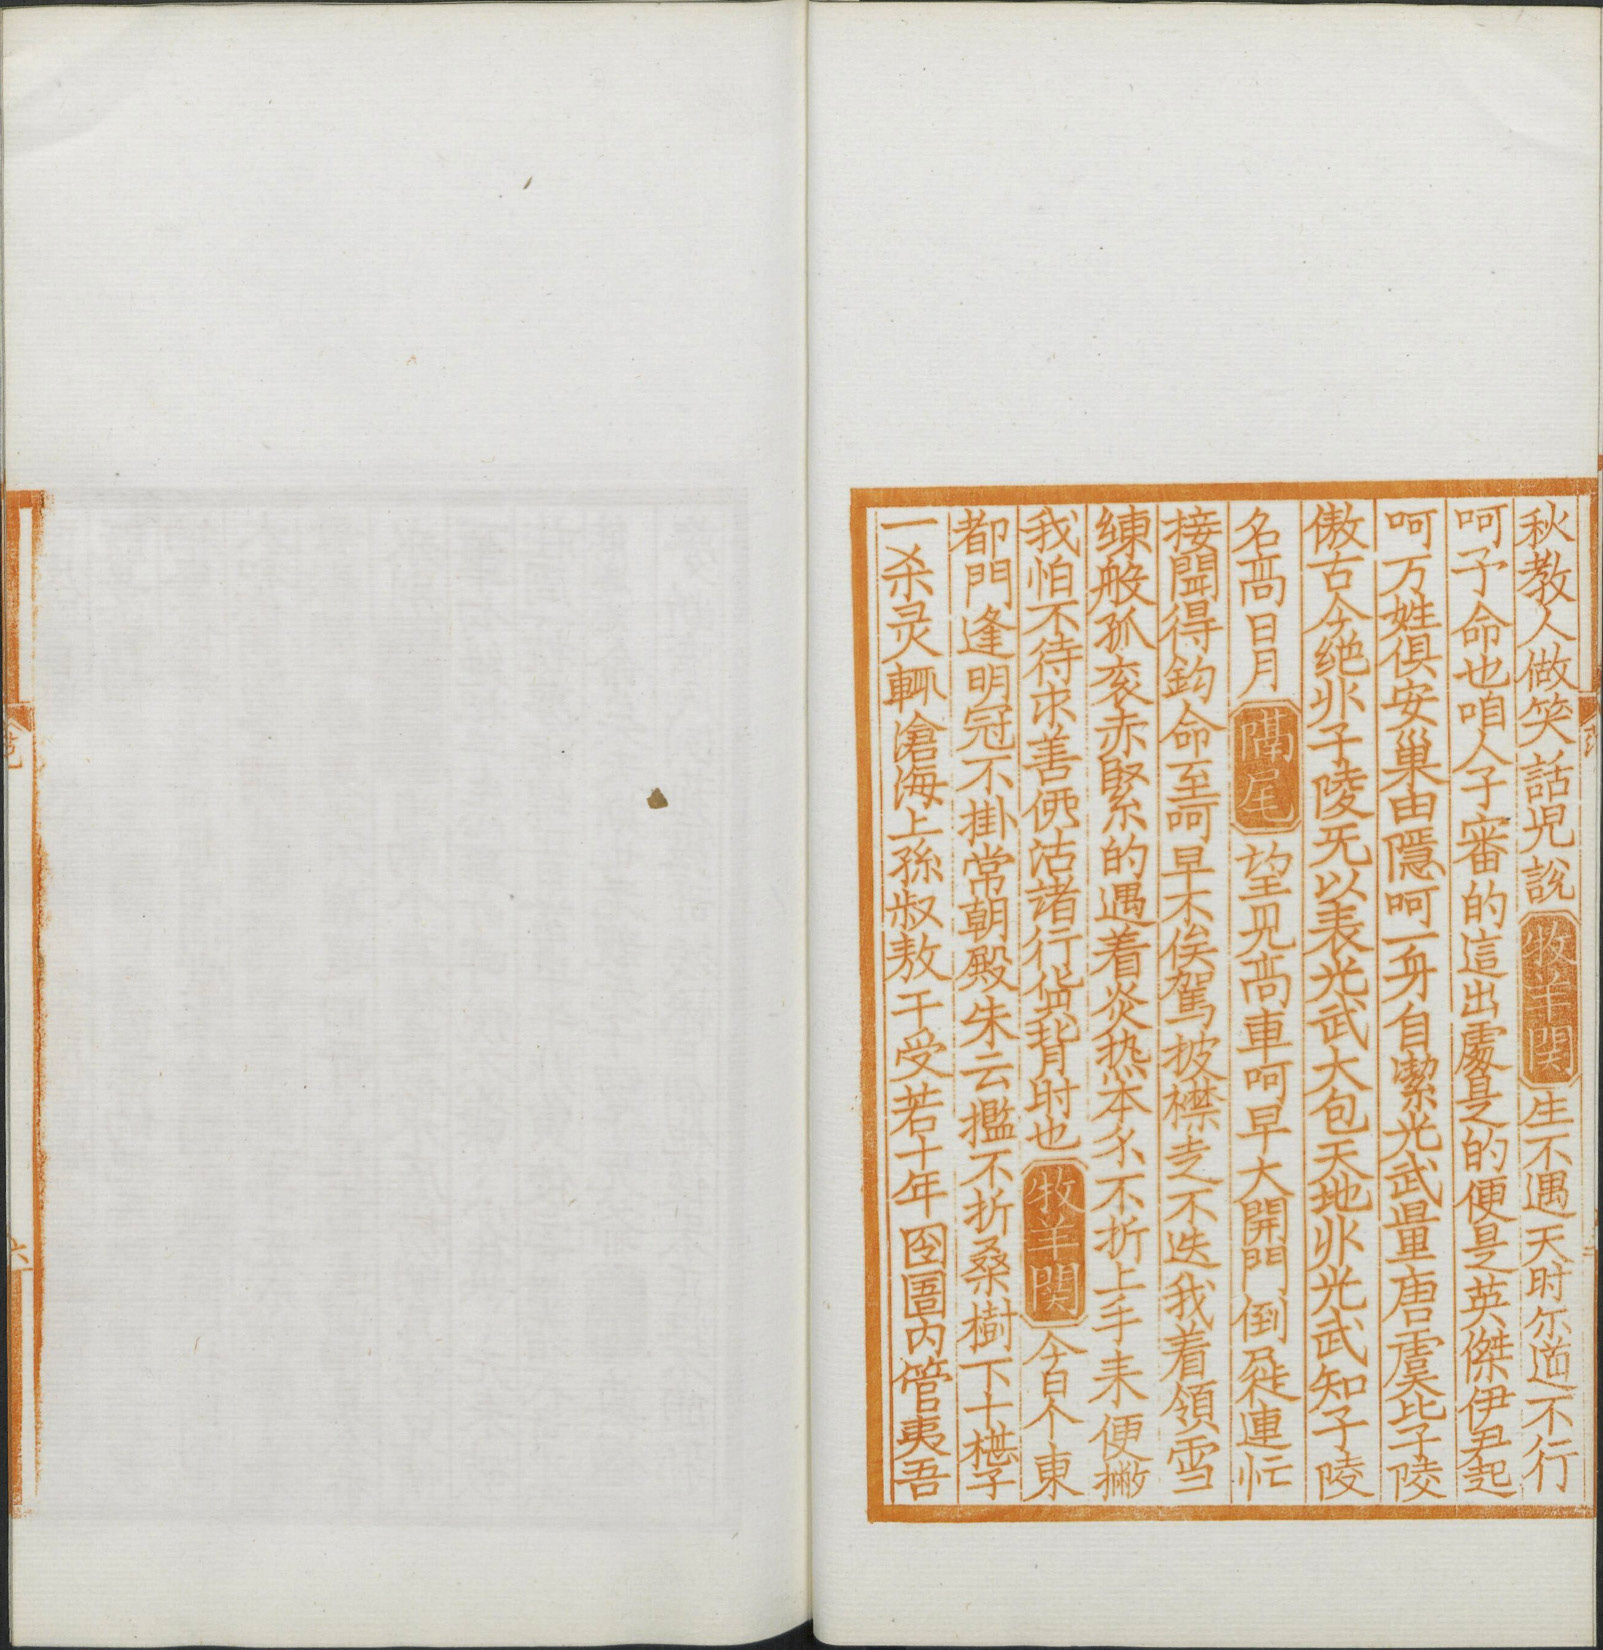 秋教人做笑話児説牧羊関生不遇天时尔道不行
呵予命也咱人子審的這出處是的便是英傑伊尹起
呵万姓俱安巢由隱呵一身自潔光武量唐虞比子陵
傲古今绝非子陵无以表光武大包天地非光武知子陵
名髙日月隔尾望見髙車呵早大開門倒屣連忙
接聞得鈎命至呵早不俟駕披襟走不迭我着領雪
練般狐裘赤緊的遇着炎热本尔不折上手来便撇
我怕不待求善價沽諸行货背时也牧羊関今日个東
都門逢明冠不掛常朝殿朱云攔不折桑樹下十椹子
一杀灵輙滄海上孫叔敖干受苦十年囹圄内管夷吾
六